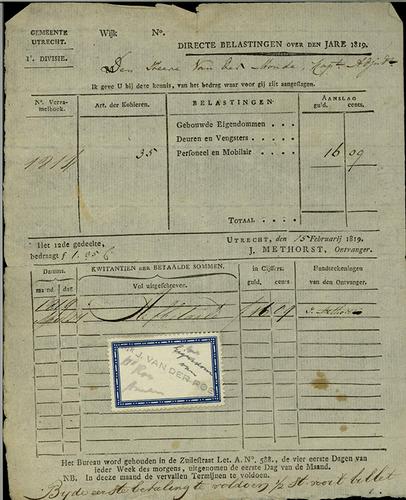 GEMEENTE UTRECHT.
1e. DIVISIE.
Wijk No.
DIRECTE BELASTINGEN OVER DEN JARE 1819.
Den Heere Van der
Ik geve U bij deze kennis, van het bedrag waar voor gij zijt aangeslagen.
No. Verzamelboek.
Art. der Kohieren.
BELASTINGEN
AANSLAG
guld. cents
Gebouwde Eigendommen
Deuren en Vengsters
Personeel en Mobilair
1214
35
16 09
TOTAAL
Het 12de gedeelte,
bedraagt f 1.35
UTRECHT, den 15 Februarij 1819.
J. METHORST, Ontvanger.
Datums.
maand dag
KWITANTIEN DER BETAALDE SOMMEN.
Vol uitgeschreven.
in Cijffers.
guld. cents
Handteekeningen van den Ontvanger.
16 09
J. VAN DER ROS
Het Bureau word gehouden in de Zuilestraat Let. A. No. 528., de vier eerste Dagen van
ieder Week des morgens, uitgenomen de eerste Dag van de Maand.
NB. In deze maand de vervallen Termijnen te voldoen.
Bij de eerste betaling te voldoen 1/2 st voor 't billet